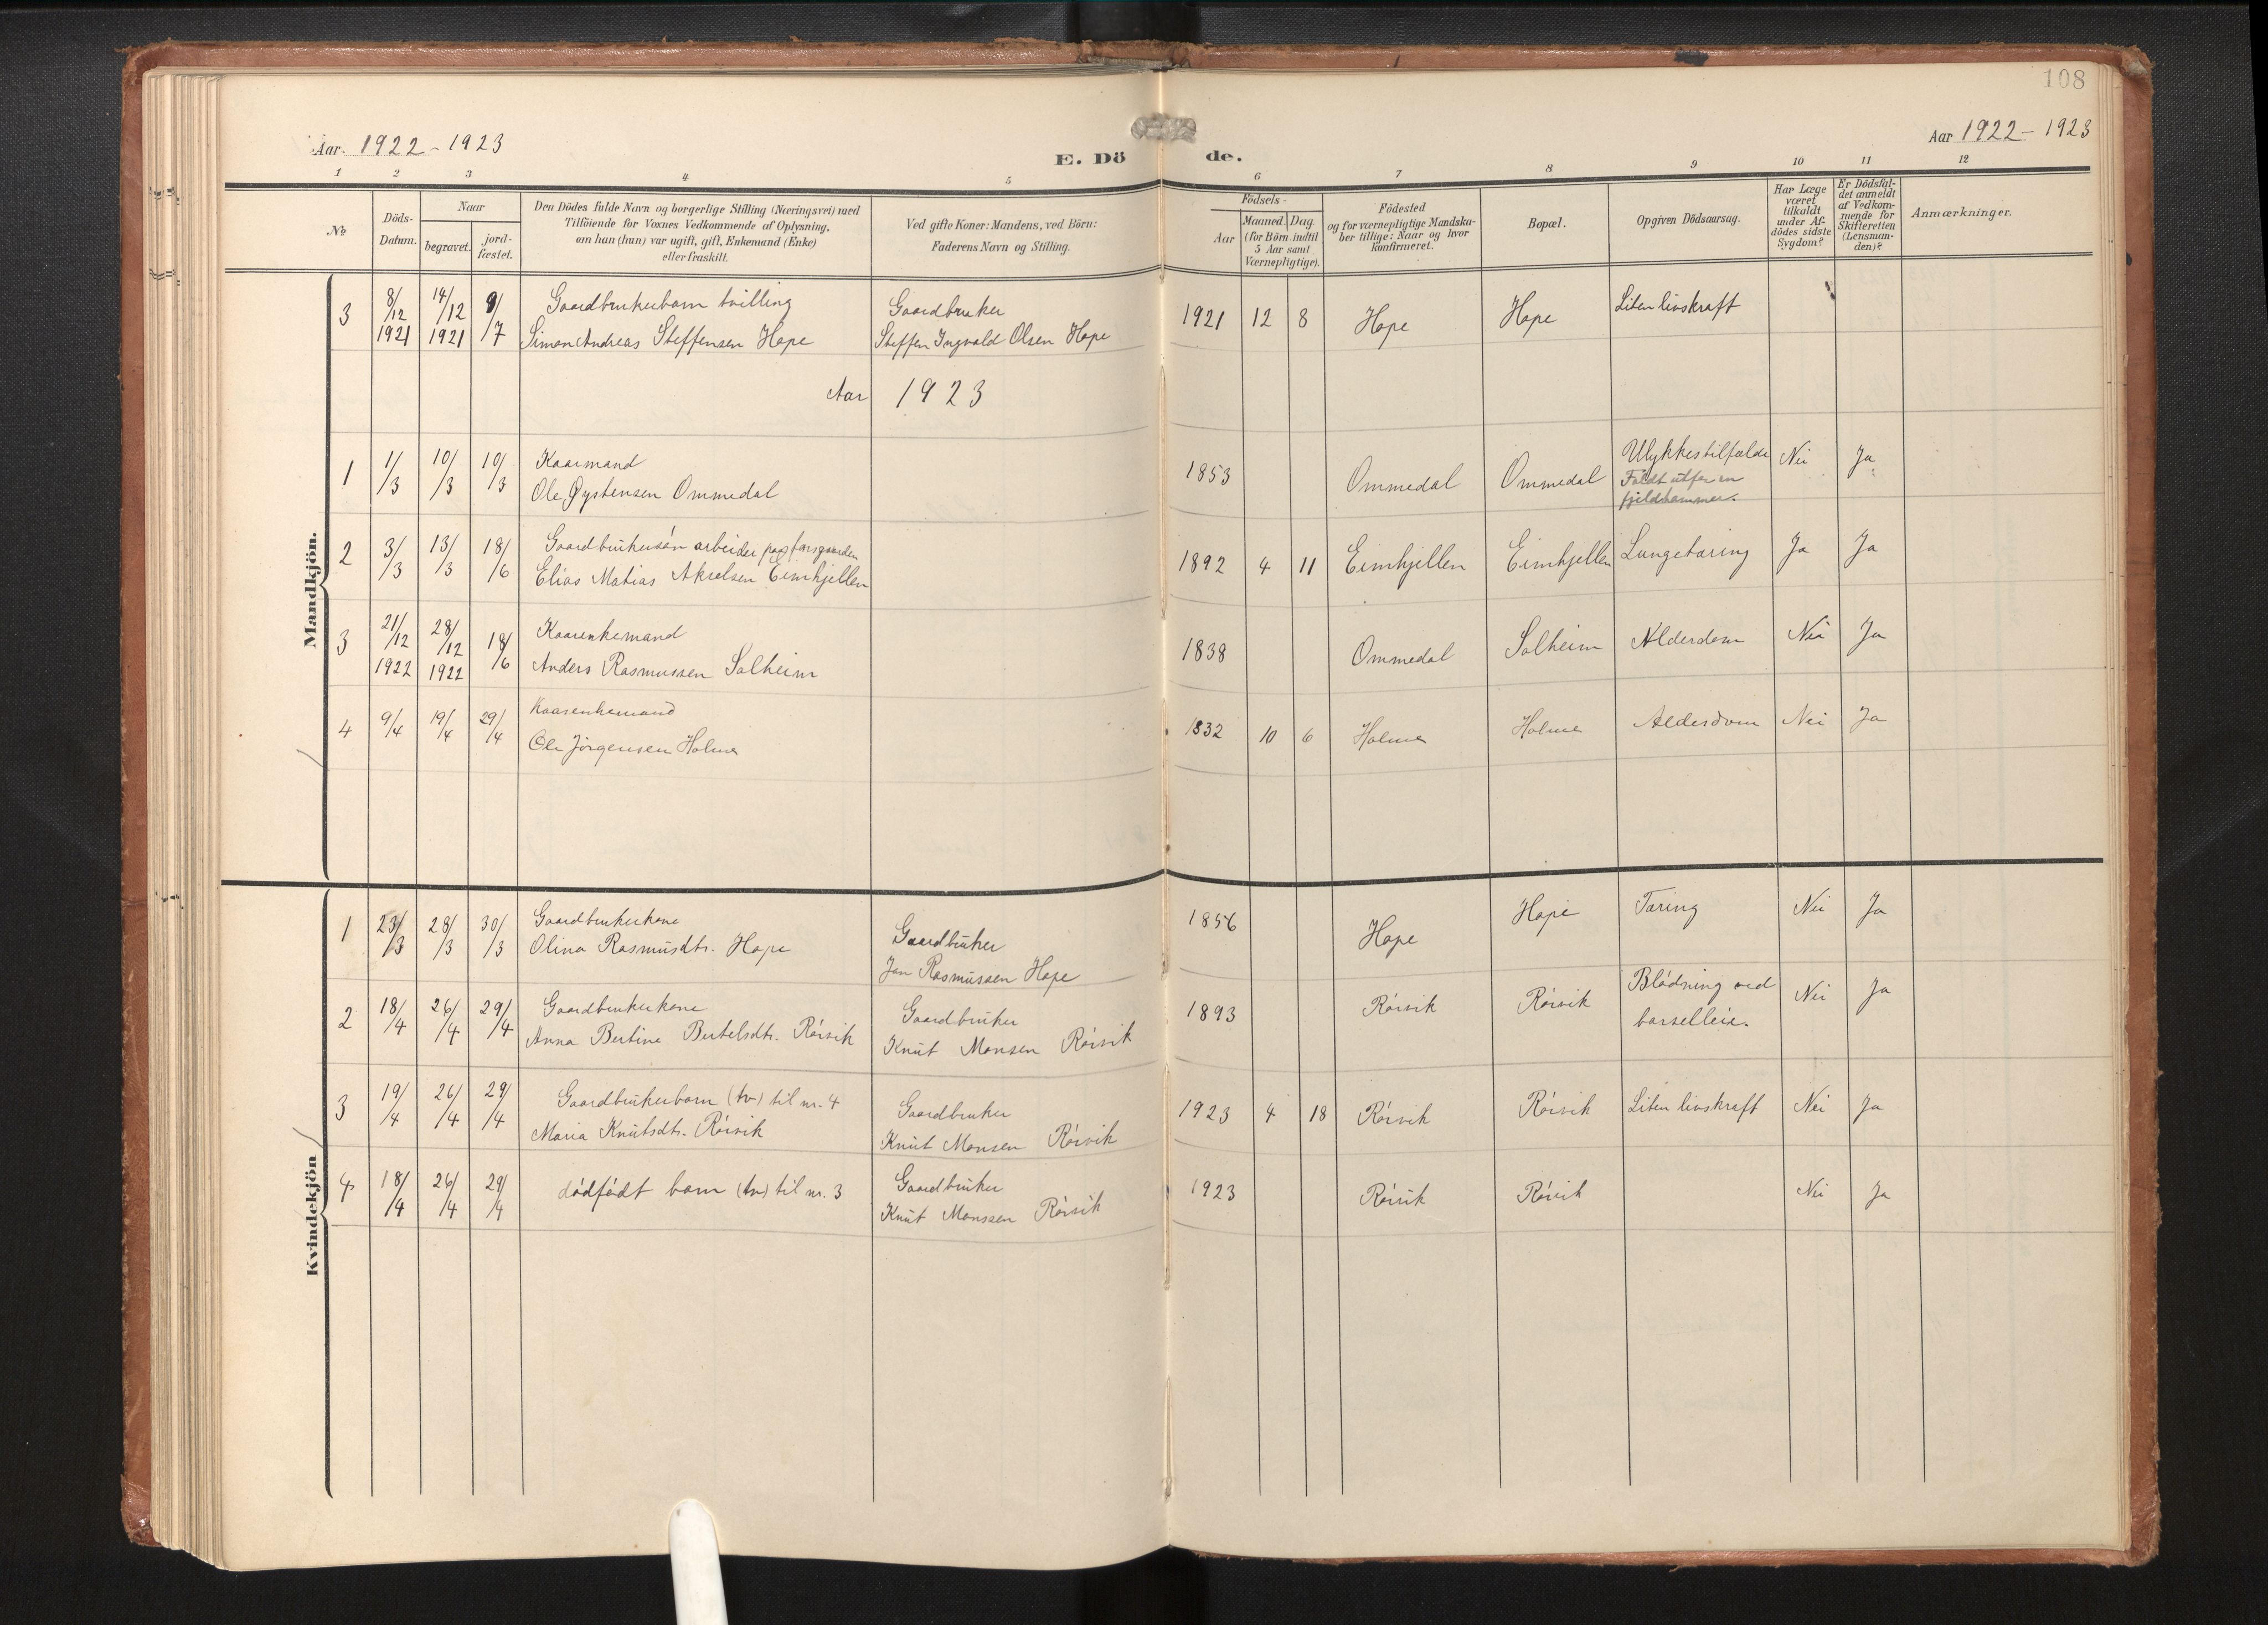 108
Aar 1922 - 1923
E. Dö de.
Aar 1922 - 1923
1 2 3 4 5 6 7 8 9 10 11 12
No
Döds-
Datum.
Naar
begravet.
jord-
fæstet.
Den Dödes fulde Navn og borgerlige Stilling (Næringsvei) med
Tilföiende for Voxnes Vedkommende af Oplysning,
om han (hun) var ugift, gift, Enkemand (Enke)
eller fraskilt.
Ved gifte Koner: Mandens, ved Börn:
Faderens Navn og Stilling.
Födsels-
Aar
Maaned Dag
(for Börn indtil
5 Aar samt
Værnepligtige).
Födested
og for værnepligtige Mandska-
ber tillige: Naar og hvor
konfirmeret.
Bopæl.
Opgiven Dödsaarsag.
Har Læge
været
tilkaldt
under Af-
dödes sidste
Sygdom?
Er Dödsfal-
det anmeldt
af Vedkom-
mende for
Skifteretten
(Lensman-
den)?
Anmærkninger.
Mandkjön.
3 8/12 1921 14/12 1921 9/7 Gaardbrukerbarn tvilling
Simon Andreas Steffensen Hope
Gaardbruker
Steffen Ingvald Olsen Hope
1921 12 8 Hope Hope Liten livskraft
Aar 1923
1 1/3 10/3 10/3 Kaarmand
Ole Øystensen Ommedal
1853 Ommedal Ommedal Ulykkestilfælde Nei Ja
Faldt utfor en
fjeldhammer.
2 3/3 13/3 18/6 Gaardbrukersön arbeider paa farsgaarden
Elias Matias Akselsen Eimhjellen
1892 4 11 Eimhjellen Eimhjellen Lungetæring Ja Ja
3 21/12 1922 28/12 1922 18/6 Kaarenkemand
Anders Rasmussen Solheim
1838 Ommedal Solheim Alderdom Nei Ja
4 9/4 19/4 29/4 Kaarenkemand
Ole Jörgensen Holme
1832 10 6 Holme Holme Alderdom Nei Ja
Kvindekjön
1 23/3 28/3 30/3 Gaardbrukerkone
Olina Rasmusdtr. Hope
Gaardbruker
Jon Rasmussen Hope
1856 Hope Hope Tæring Nei Ja
2 18/4 26/4 29/4 Gaardbrukerkone
Anna Bertine Bertelsdtr. Röisvik
Gaardbruker
Knut Monsen Röisvik
1893 Röisvik Röisvik Blödning ved Nei Ja
barselleie.
3 19/4 26/4 29/4 Gaardbrukerbarn (tv) til nr. 4
Maria Knutsdtr. Röisvik
Gaardbruker
Knut Monsen Röisvik
1923 4 18 Röisvik Röisvik Liten livskraft Nei Ja
4 18/4 26/4 29/4 dödfödt barn (tv) til nr. 3
Gaardbruker
Knut Monssen Röisvik
1923 Röisvik Röisvik Nei Ja